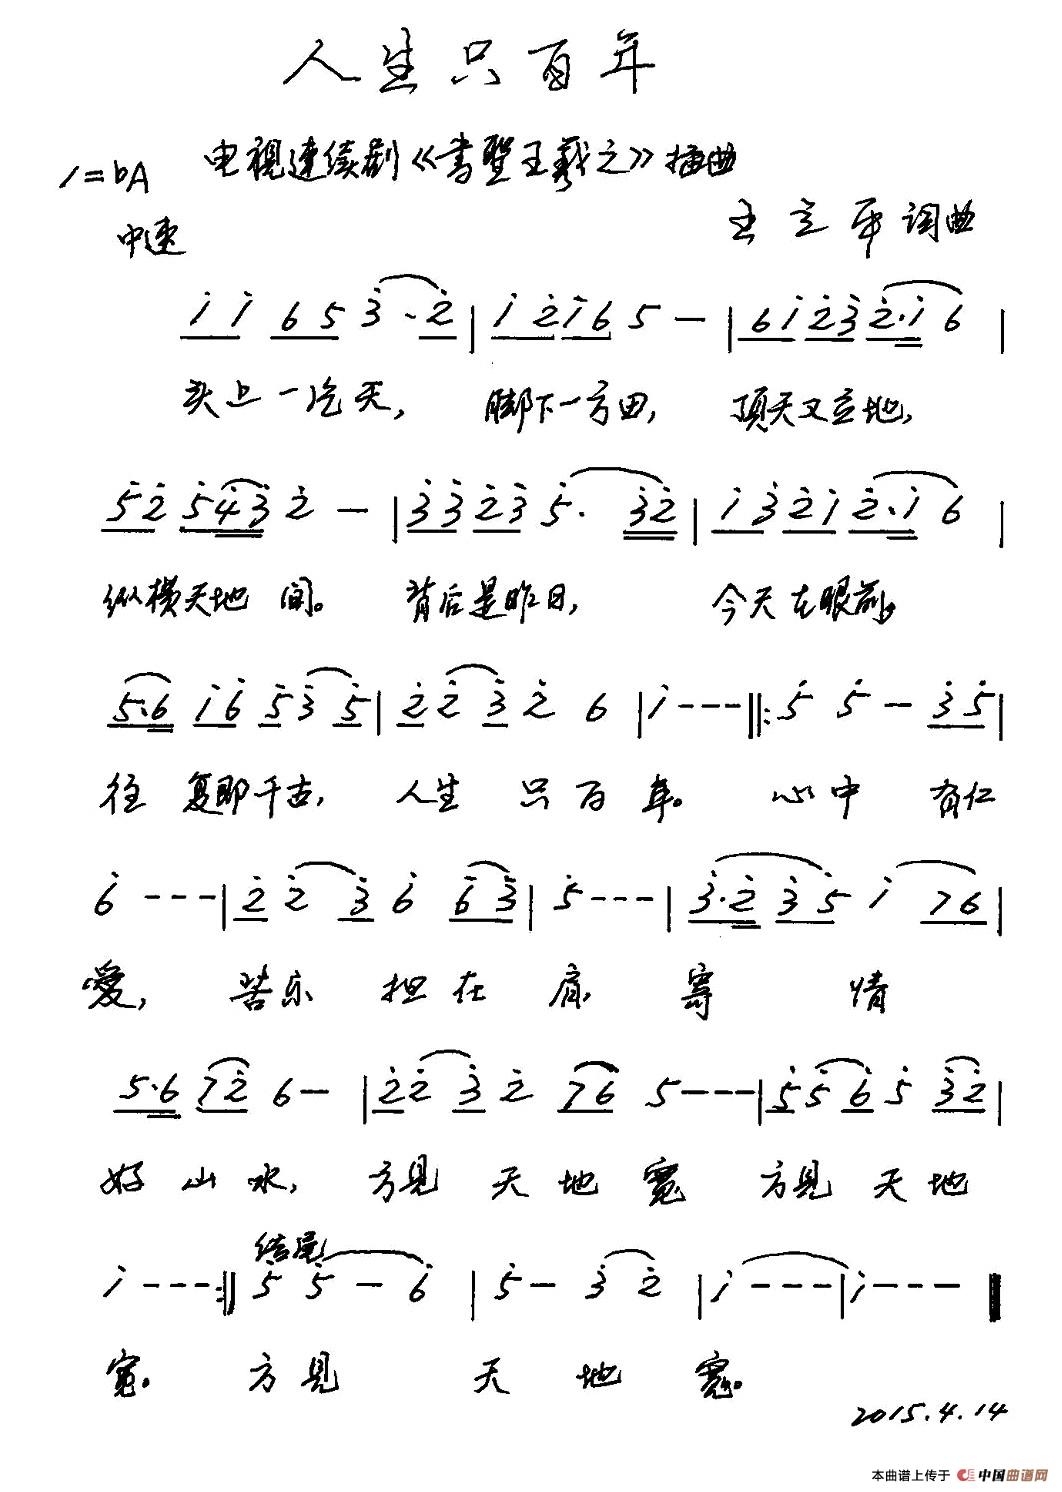 人生只百年
电视連续剧《書聖王羲之》插曲
1=bA
中速
王立平词曲
i i 6 5 3·2 | i 2 i 6 5 — | 6 i 2 3 2·i 6 |
头上一片天，脚下一方田，頂天又立地，
5 2 5 4 3 2 — | 3 3 2 3 5· 3 2 | i 3 2 i 2·i 6 |
纵横天地间。背后是昨日，今天在眼前。
5·6 i 6 5 3 5 | 2 2 3 2 6 | i - - - ‖: 5 5 — 3 5 |
往复即千古，人生只百年。心中有仁
6 - - - | 2 2 3 6 6 3 | 5 - - - | 3·2 3 5 i 7 6 |
愛，苦乐担在肩，寄情
5·6 7 2 6 — | 2 2 3 2 7 6 5 - - - | 5 5 6 5 3 2 |
好山水，方見天地寬 方見天地
i - - - :‖ 结尾 5 5 — 6 | 5 — 3 2 | i - - - | i - - - ‖
寬。方見天地寬。
2015.4.14
本曲谱上传于 中国曲谱网